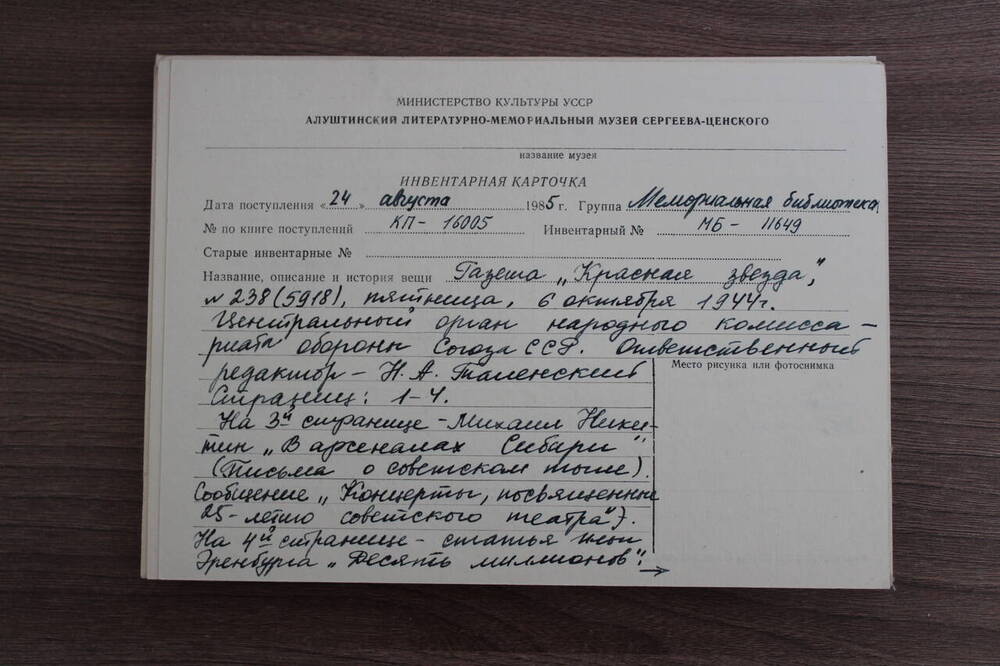 МИНИСТЕРСТВО КУЛЬТУРЫ УССР
АЛУШТИНСКИЙ ЛИТЕРАТУРНО-МЕМОРИАЛЬНЫЙ МУЗЕЙ СЕРГЕЕВА-ЦЕНСКОГО
название музея
ИНВЕНТАРНАЯ КАРТОЧКА
Дата поступления «24» августа 1985 г. Группа Мемориальная библиотека
№ по книге поступлений КП - 16005 Инвентарный № МБ - 11649
Старые инвентарные №
Название, описание и история вещи Газета „Красная звезда",
№ 238 (5918), пятница, 6 октября 1944 г.
Центральный орган народного комисса-
риата обороны Союза ССР. Ответственный
редактор - Н. А. Таленский
Место рисунка или фотоснимка
Страниц: 1-4.
На 3й странице - Михаил Ники-
тин „В арсеналах Сибири"
(Письма о советском тыле).
Сообщение „Концерты, посвященные
25-летию советского театра").
На 4й странице - статья Ильи
Эренбурга „Десять миллионов". →